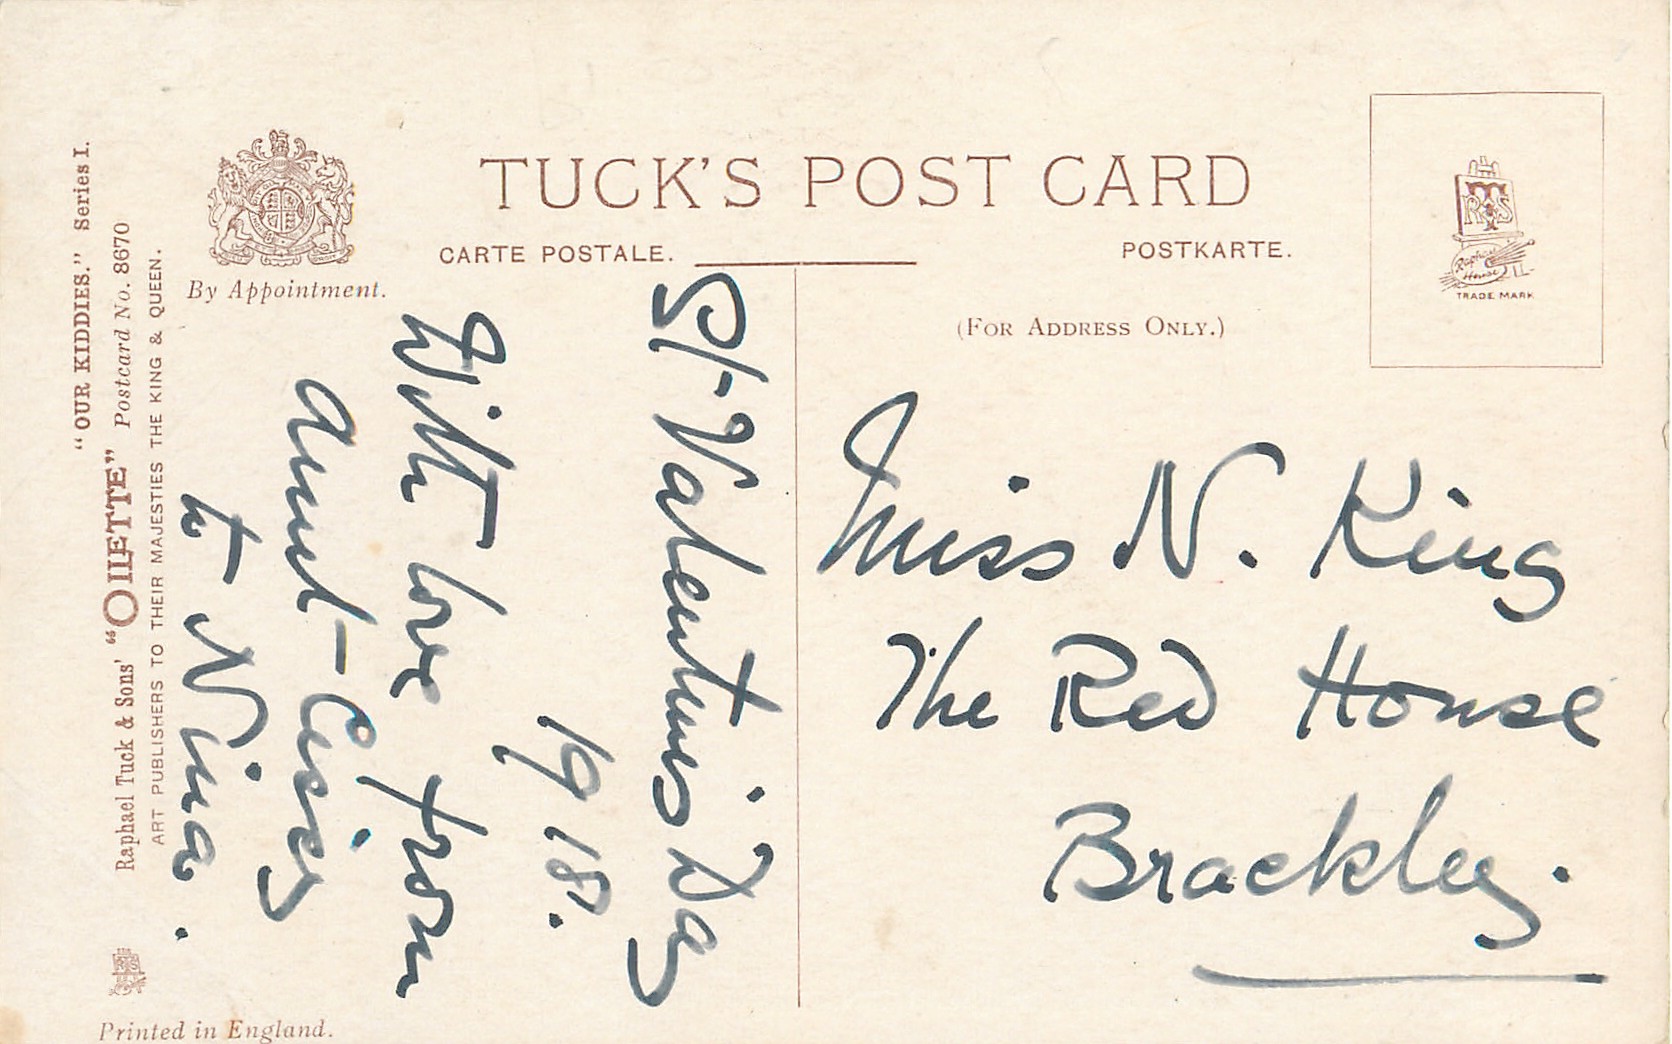 TUCK'S POST CARD
CARTE POSTALE.
POSTKARTE.
(FOR ADDRESS ONLY.)
By Appointment.
"OUR KIDDIES." Series I.
Raphael Tuck & Sons' "OILETTE" Postcard No. 8670
ART PUBLISHERS TO THEIR MAJESTIES THE KING & QUEEN.
Printed in England.
TRADE MARK
Raphael
House
St Valentines Day
1918.
With love from
Aunt
to Nina.
Miss N. King
The Red House
Brackley.